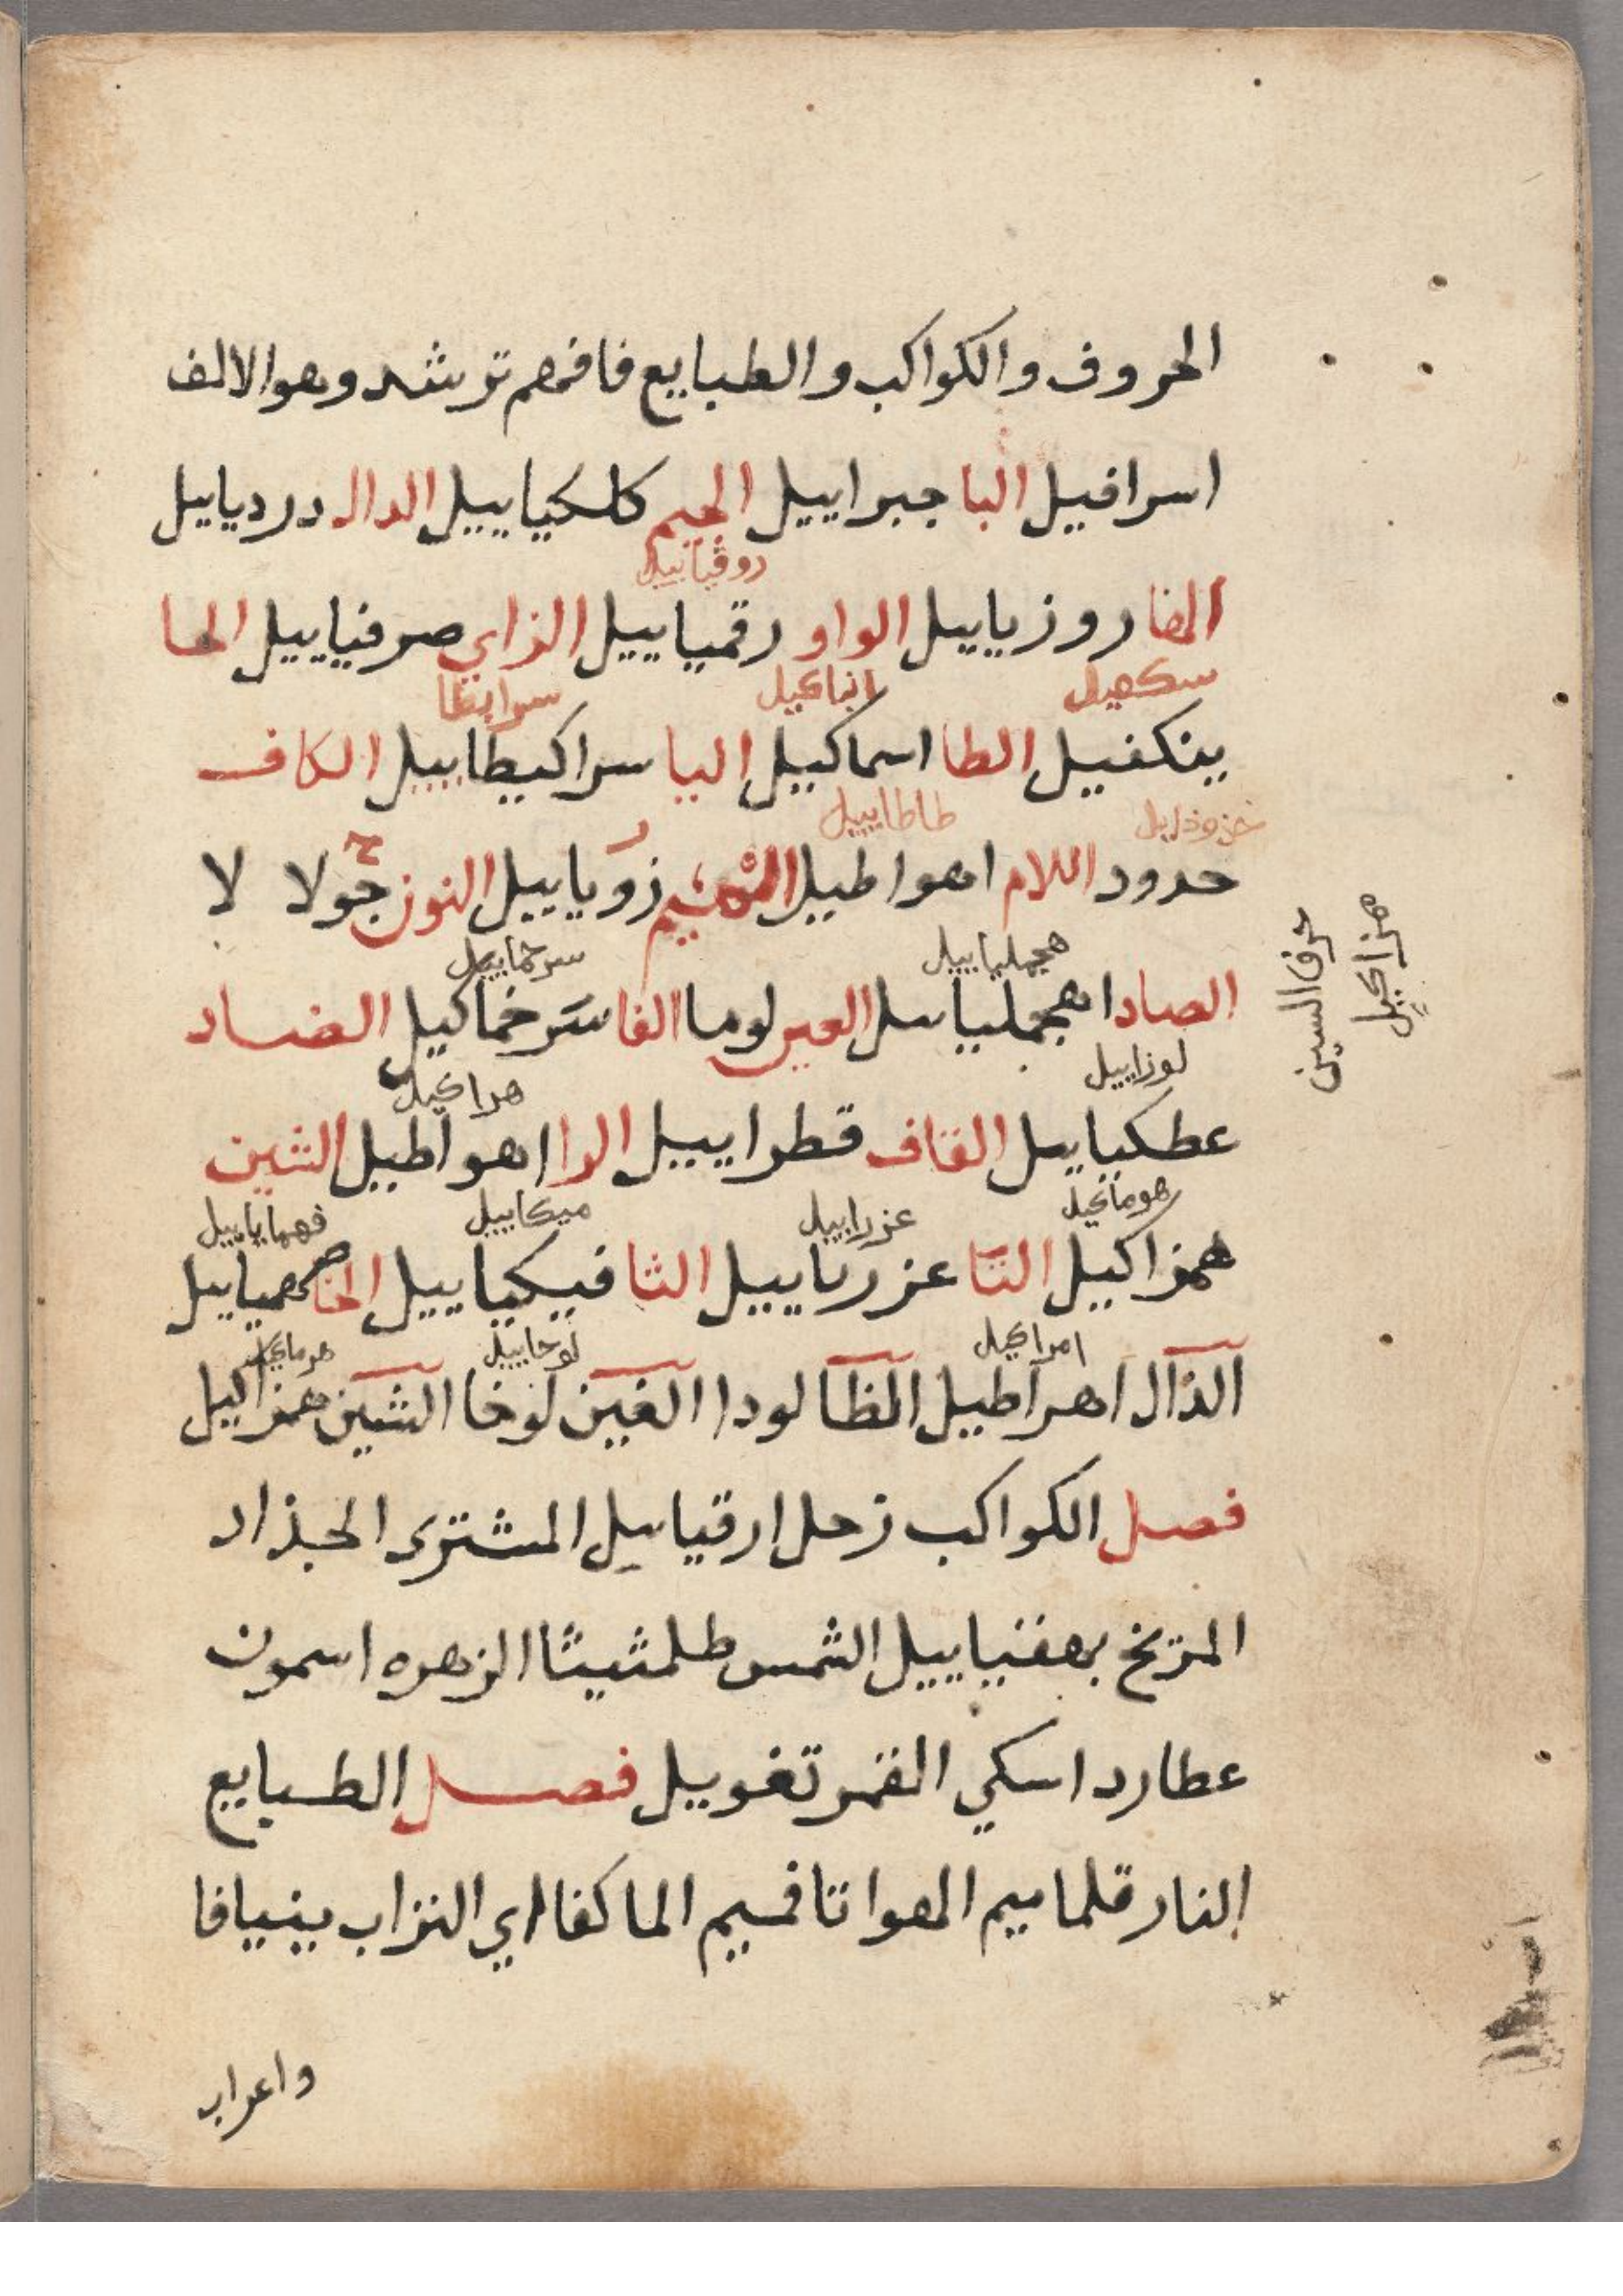 الحروف والكواكب والطبايع فافهم ترشد وهو الالف
اسرافيل البا جبراييل الجيم كلكياييل الدال دردياييل
روقياييل
الها روزياييل الواو رقمياييل الزاي صرفياييل الحا
سكهيل انباكيل سرايطا
ينكفيل الطا اسماكيل اليا سراكيطاييل الكاف
خزوذايل طاطاييل
حدود اللام اهواطيل الميم زوياييل النون جولا لا
همجلياييل سرحماييل
الصاد اهجملياييل العين لوما الفا سرخماكيل الضاد
حرف السين
همزاكيل
لوزاييل هراكيل
عطكياييل القاف قطراييل الرا اهواطيل الشين
هوماكيل عزراييل ميكاييل فهماياييل
همزاكيل التا عزرياييل الثا فيكياييل الخا همياييل
امراكيل لوخاييل هرماكيل
الذال اهراطيل الظا لودا الغين لوخا الشين همزاليل
فصل الكواكب زحل ارقياييل المشترى الجذاد
المريخ بهفنياييل الشمس طلمثيثا الزهره اسمون
عطارد اسكي القمر تغوييل فصل الطبايع
النار قلما ميم الهوا تا فميم الما كفا اي التراب ينيافا
واعراب